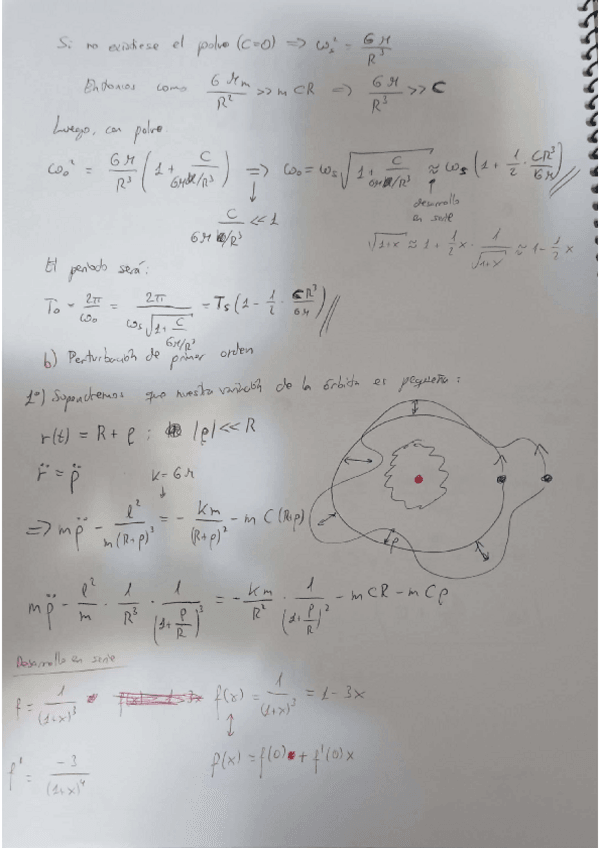 Si no existiese el polvo (C=0) => ωs² = GM/R³
Entonces como GMm/R² >> mCR => GM/R³ >> C
Luego, con polvo
ω₀² = GM/R³ (1 + C/(GM/R³)) => ω₀ = ωs √(1 + C/(GM/R³)) ≈ ωs (1 + 1/2 · CR³/GM)
↓ C/(GM/R³) << 1
↑ desarrollo
en serie
√(1+x) ≈ 1 + 1/2 x · 1/√(1+x) ≈ 1 - 1/2 x
El periodo será:
T₀ = 2π/ω₀ = 2π/(ωs √(1 + C/(GM/R³))) = Ts (1 - 1/2 · CR³/GM)
b) Perturbación de primer orden
1º) Supondremos que nuestra variación de la órbita es pequeña:
r(t) = R + ρ ; |ρ| << R
r̈ = ρ̈
k = GM
↓
=> mρ̈ - l²/(m(R+ρ)³) = - km/(R+ρ)² - mC(R+ρ)
ρ
mρ̈ - l²/m · 1/R³ · 1/(1+ρ/R)³ = - km/R² · 1/(1+ρ/R)² - mCR - mCρ
Desarrollo en serie
f = 1/(1+x)³ f(x) = 1/(1+x)³ = 1-3x
↕
f' = -3/(1+x)⁴ f(x) = f(0) + f'(0)x